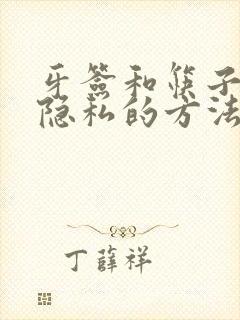 牙签和筷子
隐私的方法
丁薛祥